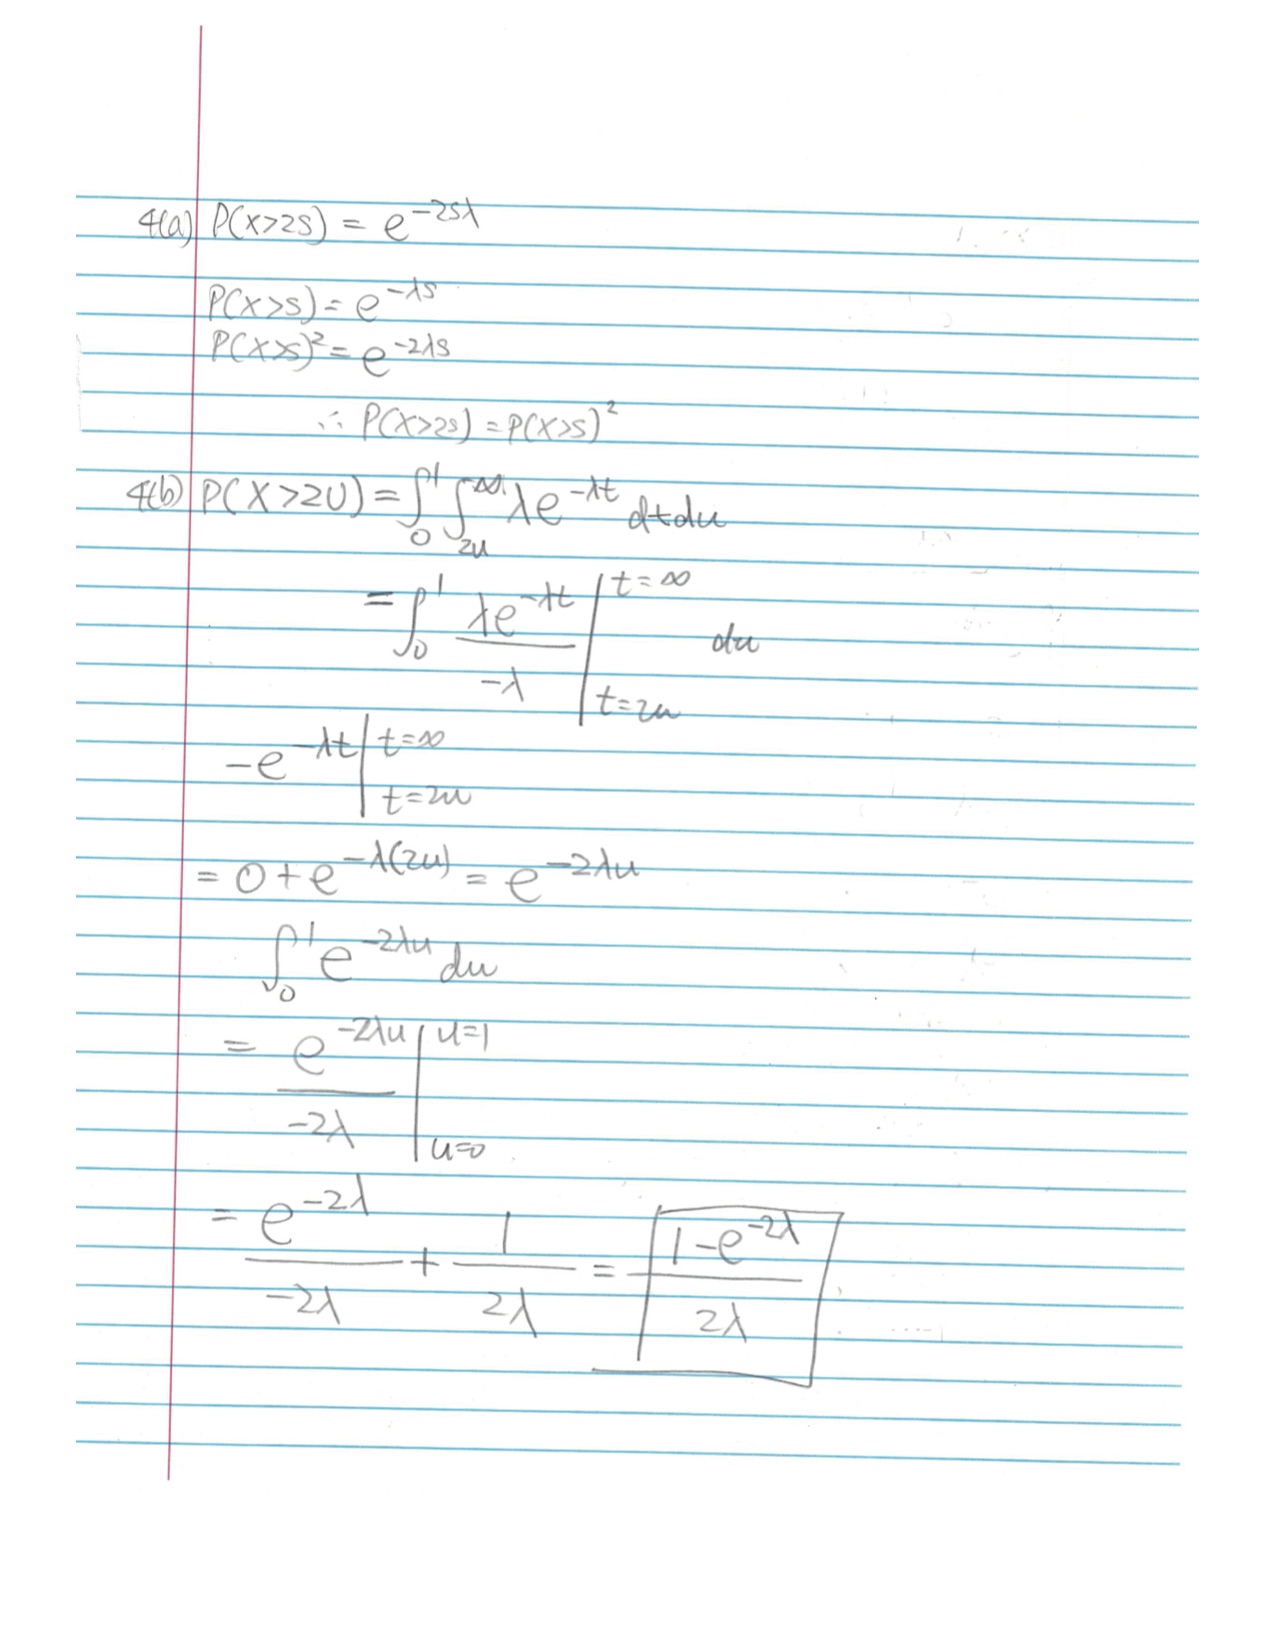 4(a) P(X>2s) = e^{-2sλ}
P(X>s) = e^{-λs}
P(X>s)^2 = e^{-2λs}
∴ P(X>2s) = P(X>s)^2
4(b) P(X>2U) = ∫_0^1 ∫_{2u}^∞ λe^{-λt} dt du
= ∫_0^1 λe^{-λt}/-λ |_{t=2u}^{t=∞} du
-e^{-λt} |_{t=2u}^{t=∞}
= 0 + e^{-λ(2u)} = e^{-2λu}
∫_0^1 e^{-2λu} du
= e^{-2λu}/-2λ |_{u=0}^{u=1}
= e^{-2λ}/-2λ + 1/2λ = 1-e^{-2λ}/2λ